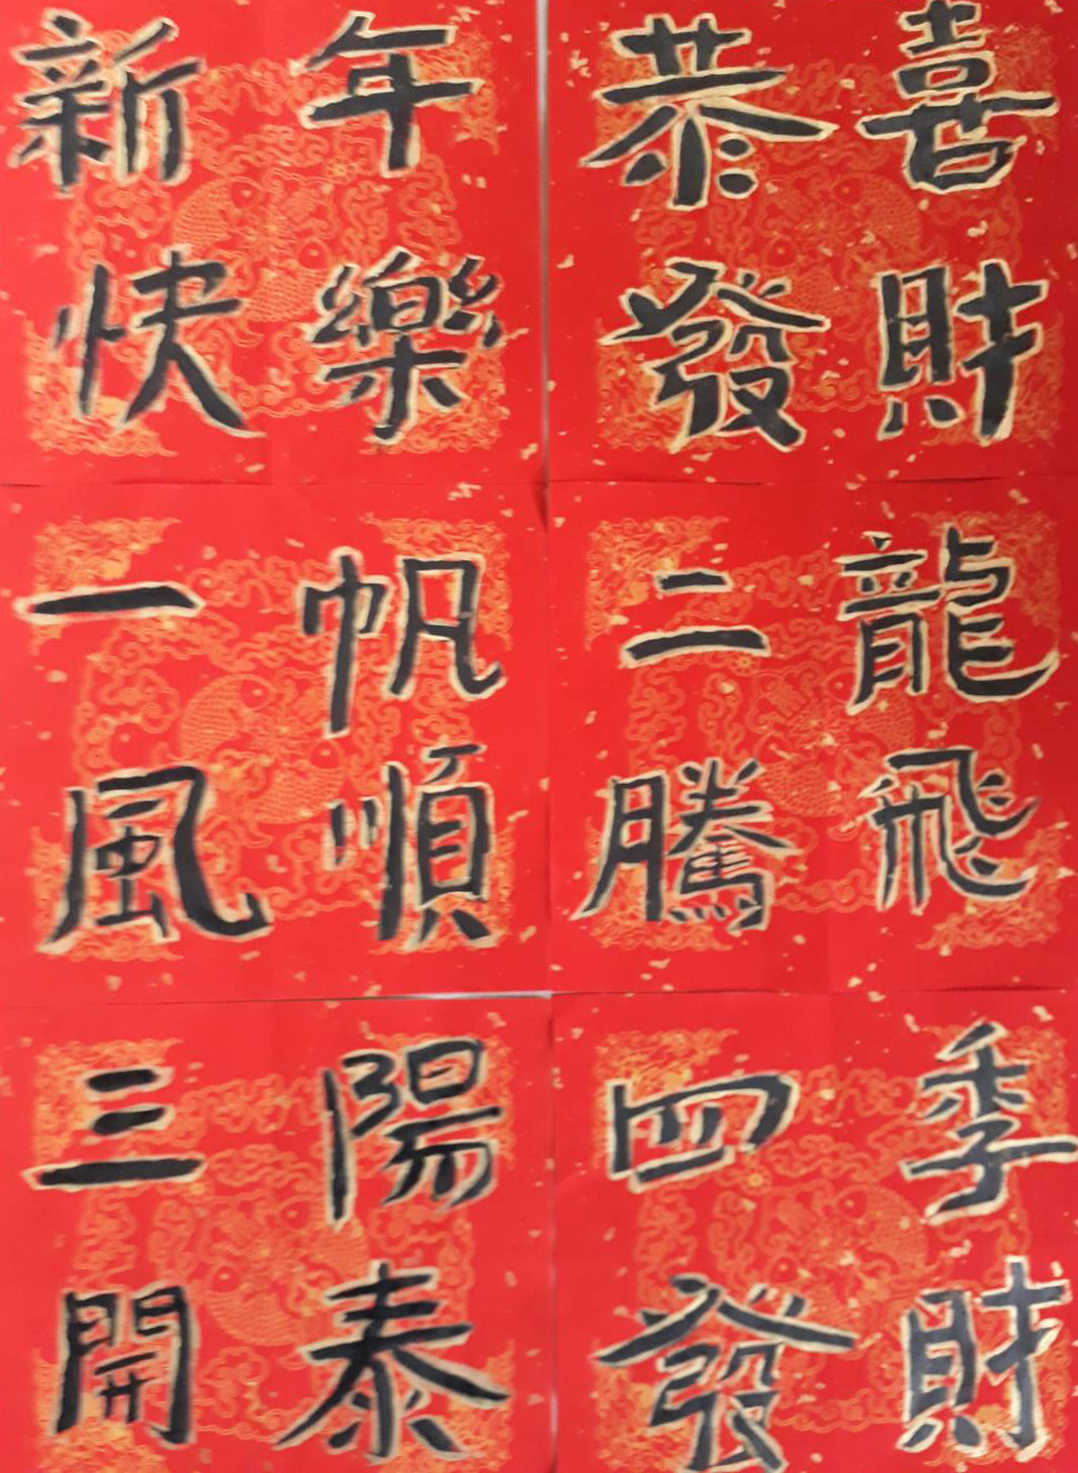 新年
快樂
恭喜
發財
一帆
風順
二龍
騰飛
三陽
開泰
四季
發財